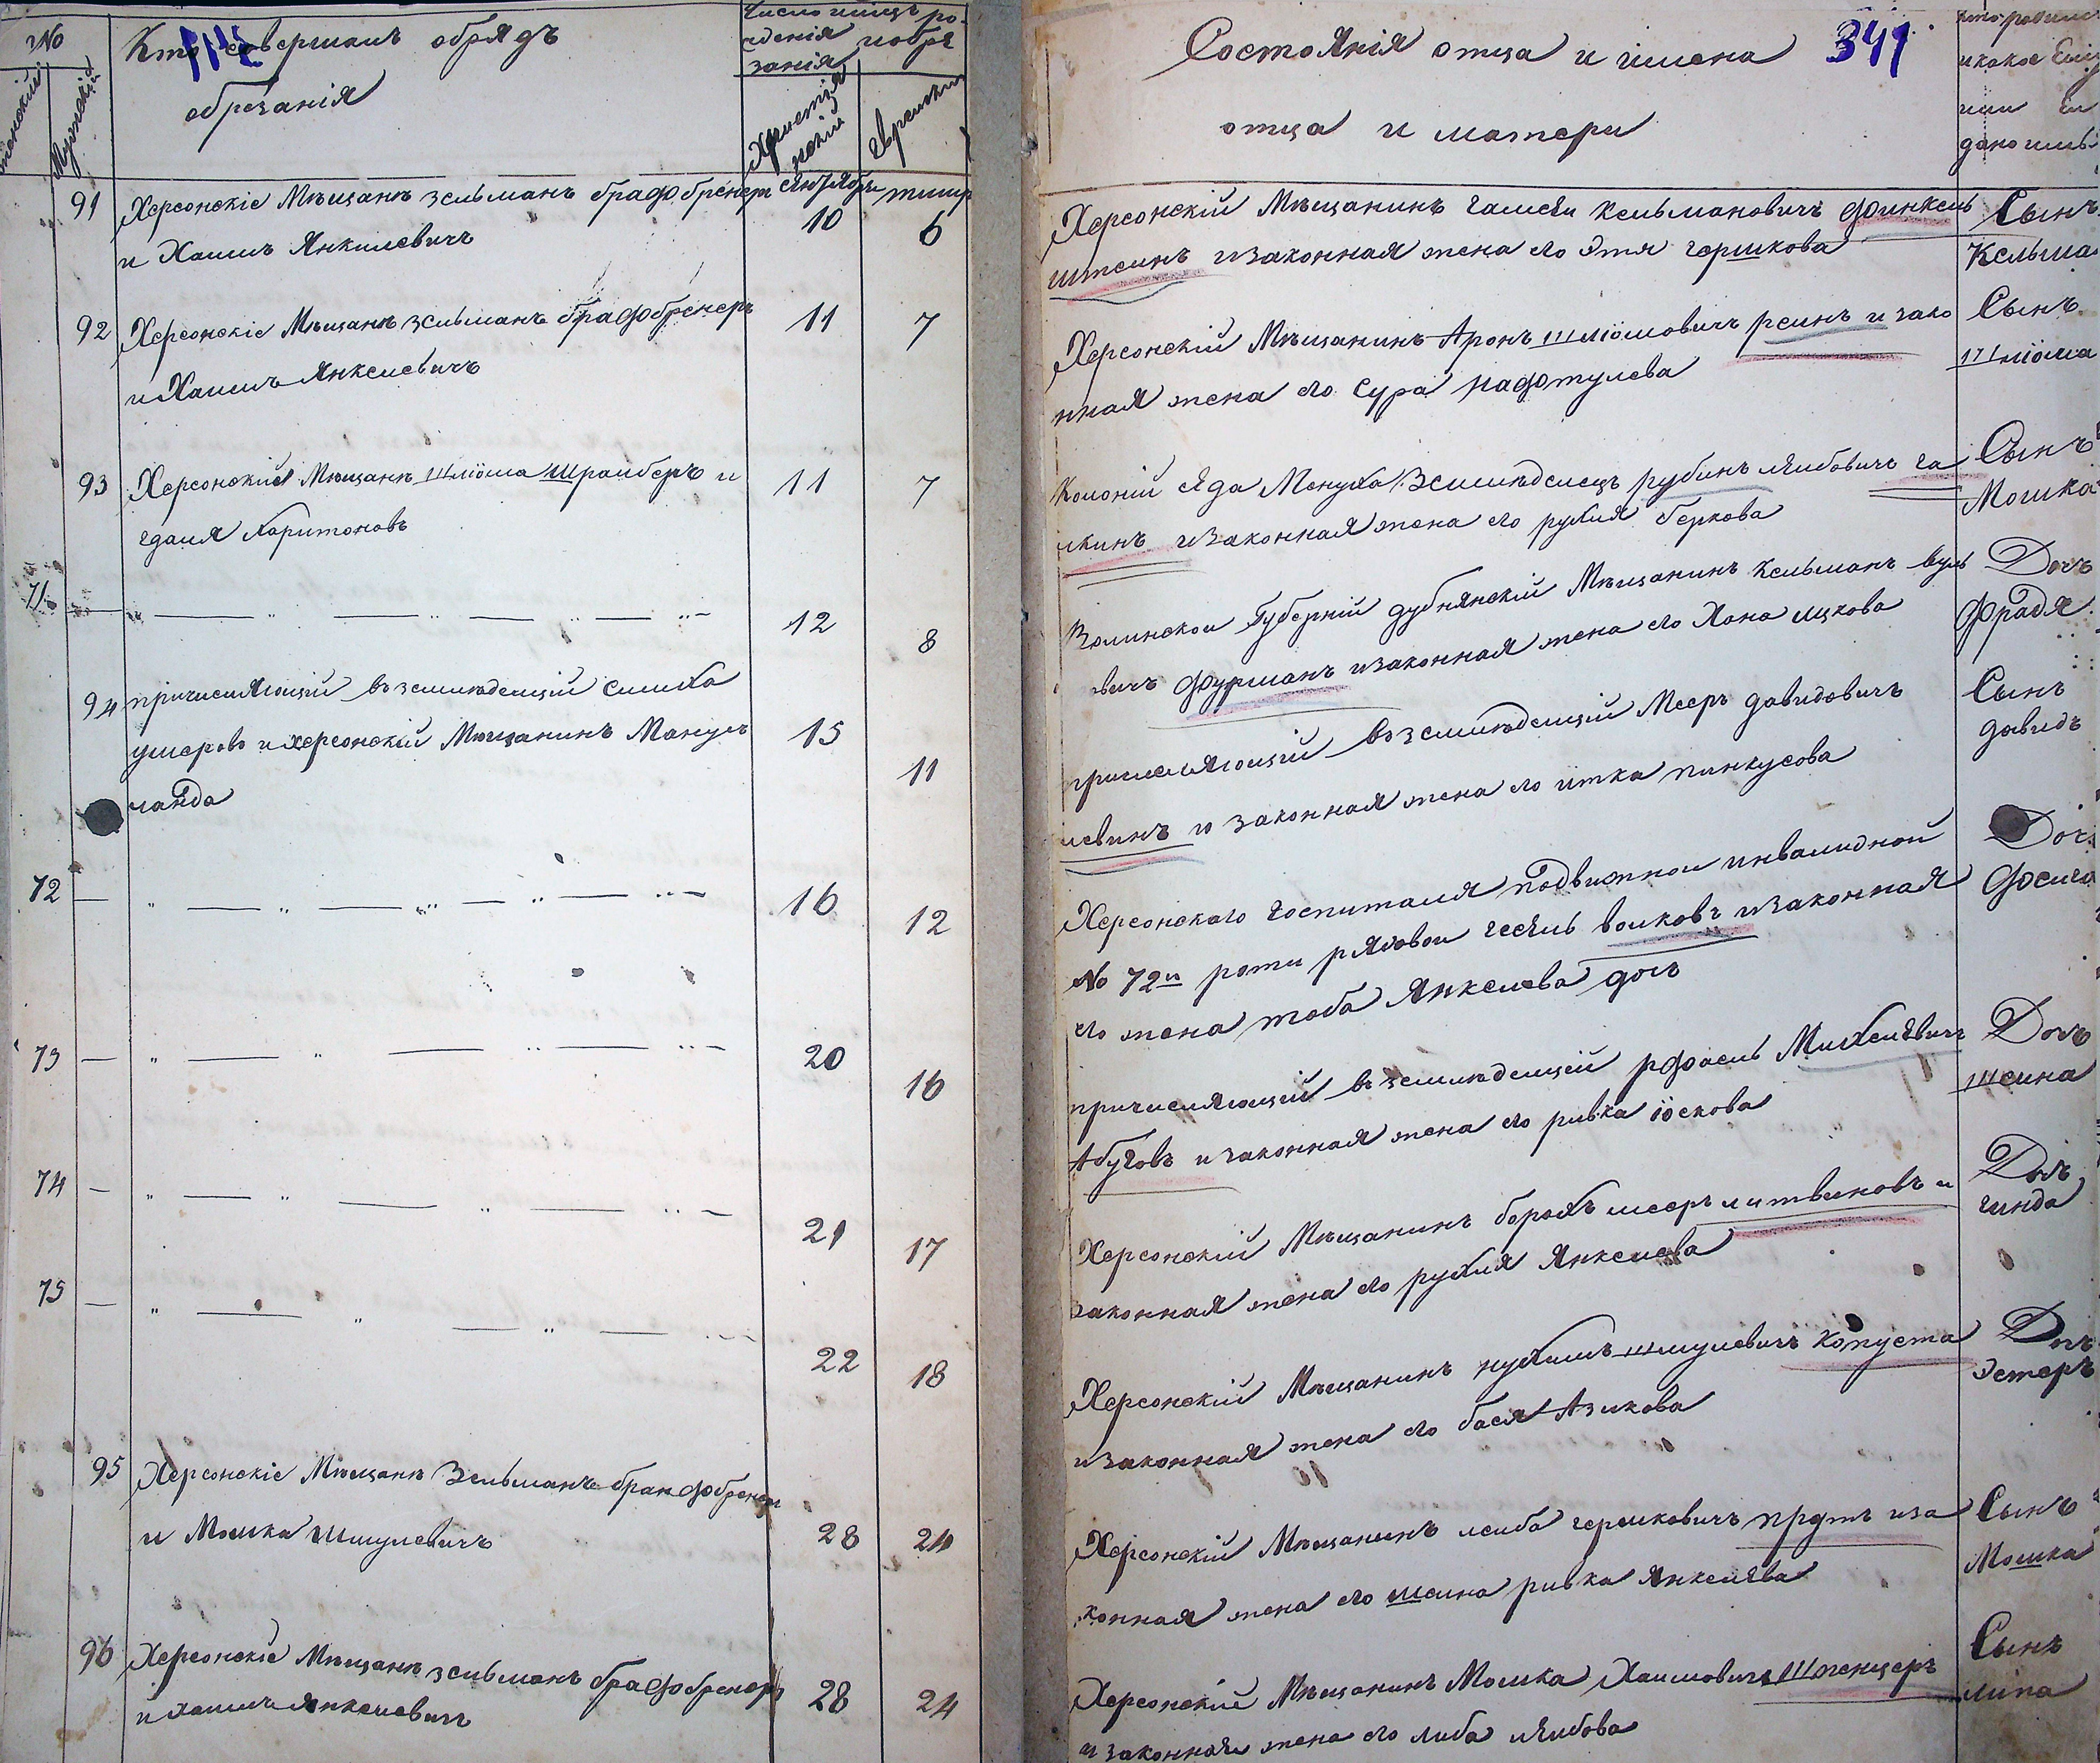 №
Кто совершалъ обрядъ
обрезанія
Число и мѣсяцъ ро-
жденія и обре
занія
Женскій
Мужскій
Христіа
нскій
Еврейскій
91
Херсонскіе Мѣщанѣ зельманъ брафбренеръ
сентября
тишри
и Хаимъ Янкилевичъ
10
6
92
Херсонскіе Мѣщанѣ зельманъ брафбренеръ
11
7
и Хаимъ Янкелевичъ
93
Херсонскій Мѣщанѣ Шліома Шрайберъ и
11
7
гдаля Харитоновъ
71
12
8
94
причисляющій въ земледельцій симха
ушеровъ и херсонскій Мѣщанинъ Манусъ
15
11
ланда
72
16
12
73
20
16
74
21
17
75
22
18
95
Херсонскіе Мѣщанѣ Зельманъ бранфбренеръ
и Мошка Шмулевичъ
28
24
96
Херсонскіе Мѣщанѣ зельманъ брафбренеръ
и хаимъ янкелевичъ
28
24
Состоянія отца и имена
341
отца и матери
кто родился
и какое ему
или ей
дано имя
Херсонскій Мѣщанинъ Кельмановичъ Финкель
Сынъ
штеинъ и законная жена его Этя гершкова
Кельма
Херсонскій Мѣщанинъ Аронъ Шліомовичъ реинъ и зако
Сынъ
нная жена его Сура нафтулева
Шліома
Колоній Седа Менуха Земледелецъ рубинъ лейбовичъ га
Сынъ
лкинъ и законная жена его рухля беркова
Мошка
Волинской Губерній дубнянскій Мѣщанинъ Кельманъ вуль
Дочъ
вичъ фурманъ и законная жена его Хана ицкова
Фрадя
причисляющій въ земледельцій Мееръ давидовичъ
Сынъ
левинъ и законная жена его итка пинкусова
давидъ
Херсонскаго госпиталя подвижной инвалидной
Дочъ
№ 72й роты рядовой волковъ и законная
его жена тоба Янкелева дочъ
причисляющій въ земледельцей рфаель Михелевичъ
Дочъ
Абуговъ и законная жена его ривка іоскова
Шеина
Херсонскій Мѣщанинъ борохъ мееръ литвиновъ и
Дочъ
законная жена его рухля Янкелева
гинда
Херсонскій Мѣщанинъ нухимъ шмулевичъ капуста
Дочъ
и законная жена его бася Азикова
Эстеръ
Херсонскій Мѣщанинъ леиба гершковичъ прутъ и за
Сынъ
конная жена его шеина ривка Янкелева
Мошка
Херсонскіе Мѣщанинъ Мошка Хаимовичъ Шпенцеръ
Сынъ
и законная жена его либа лейбова
липа